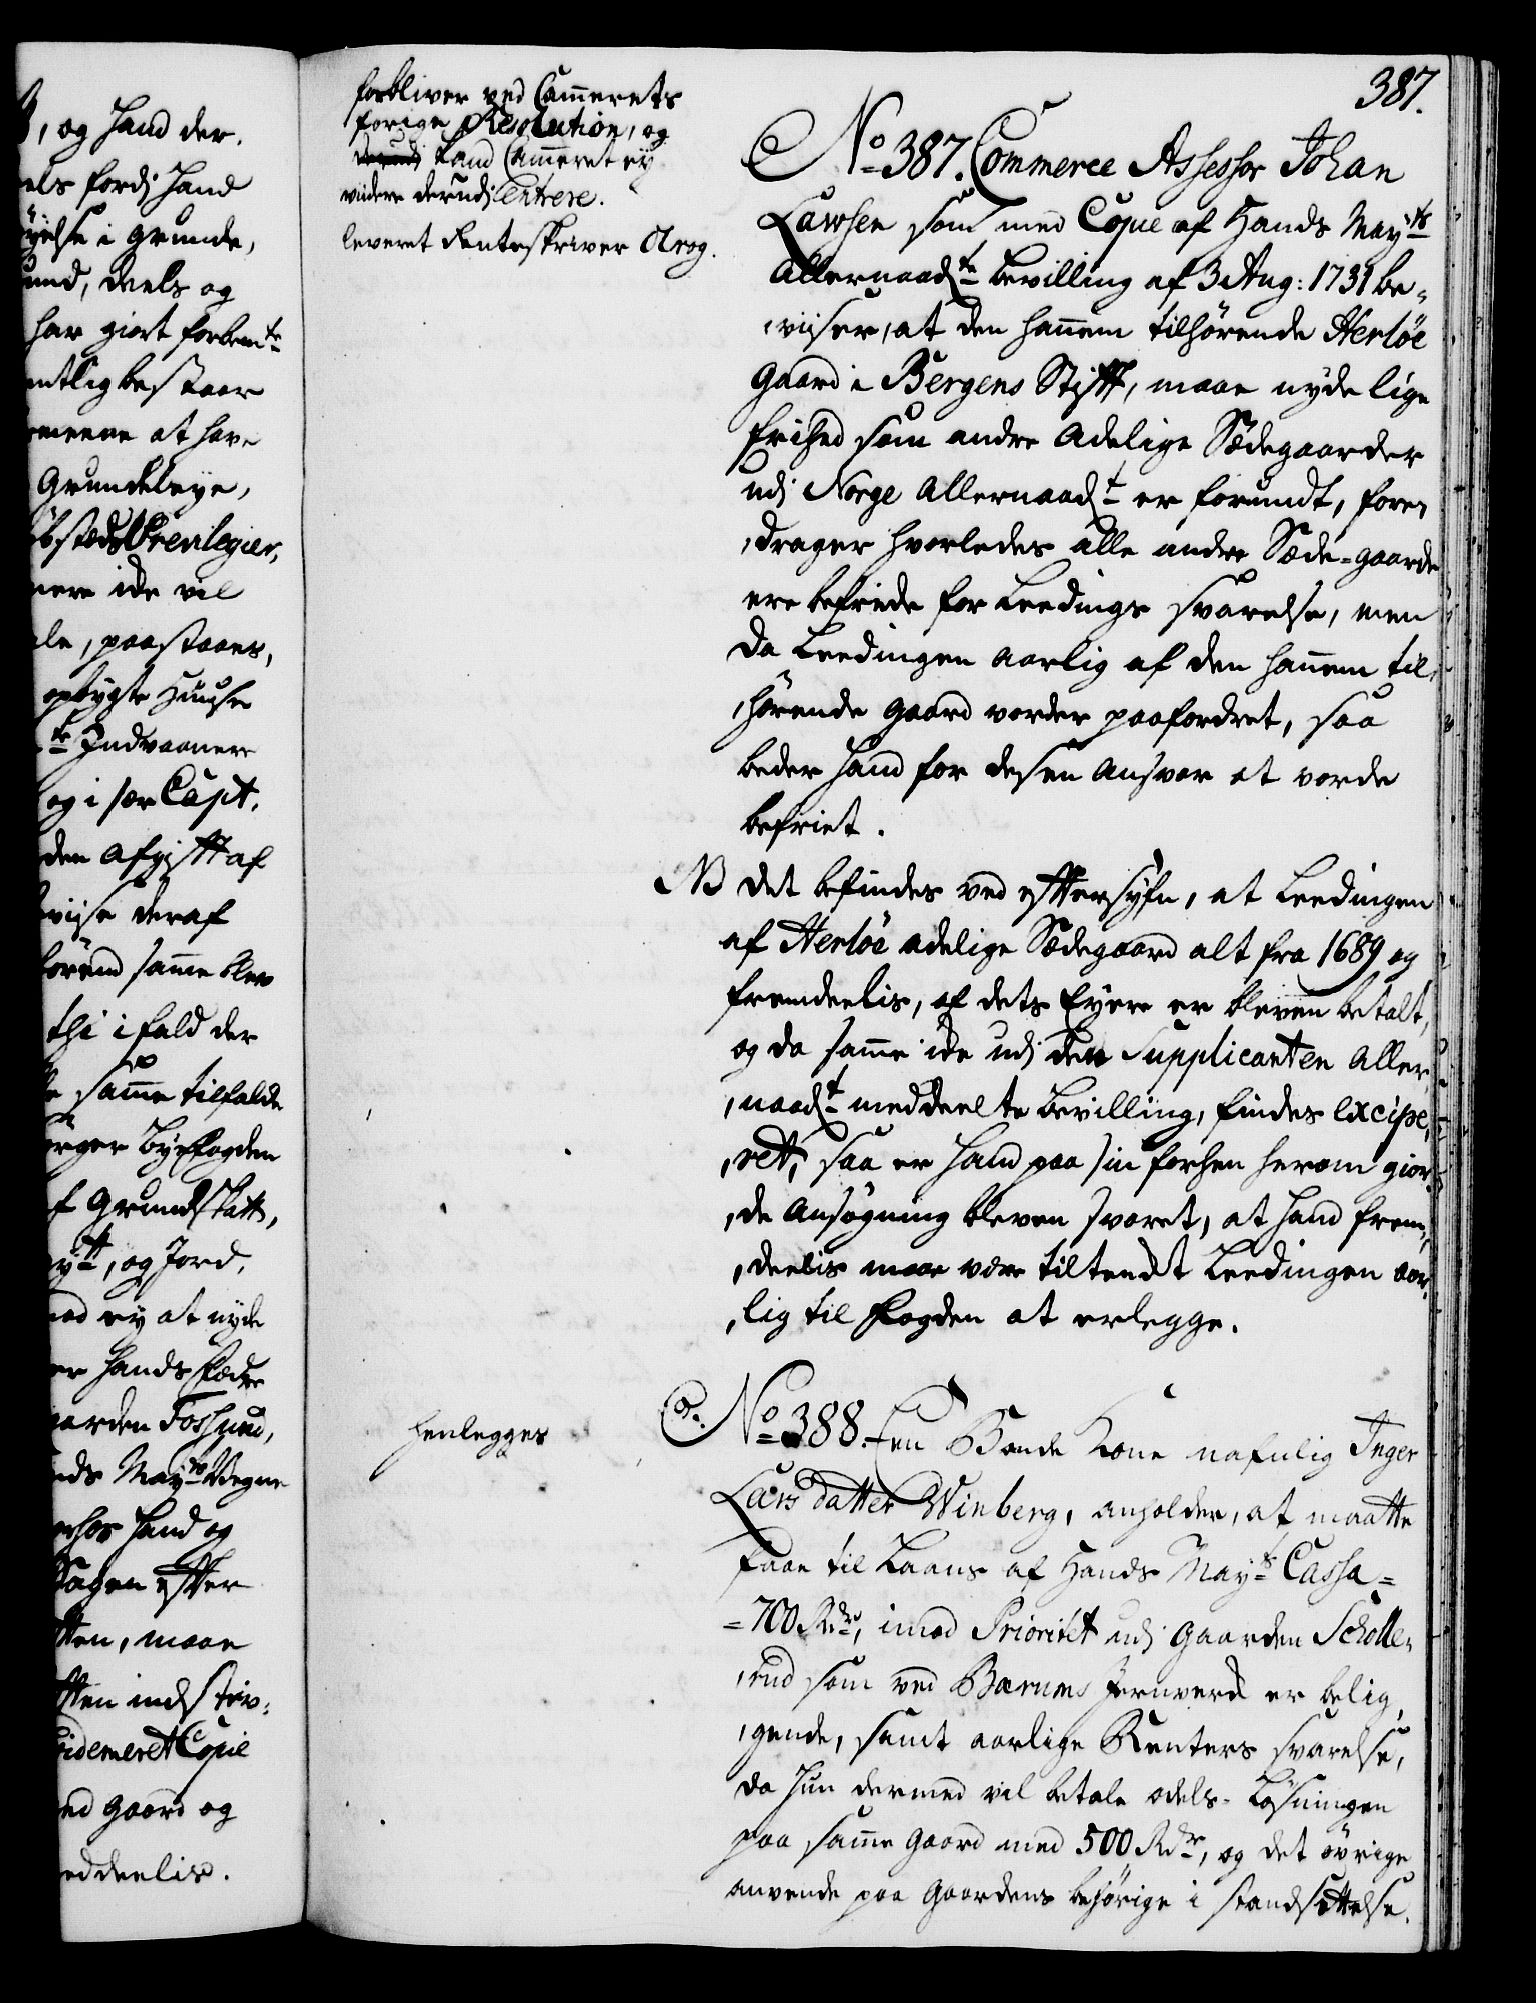 B, og hand der.
els fordj hand
øyelse i grunde,
und, deels og
har giort forbem.te
entlig bestaar
meene at have
Grundeleye,
kiøbstæds Previlegier,
mere ide vil
ale, paastaaes,
opbygte Huuse
te Indvaanere
og i sær Capt.
den afgifft af
beviise deraf
førend samme blev
thi i fald der
de samme tilfalde
Borger Byefogden
af Grundskatt,
May.tt, og Jord,
nod ey at nyde
er hands Fædre
gaarden Fosshund,
nds May.ts Vegne
erhos hand og
Sagen efter
tten, maae
tten indskriv:
videmeret Copie
ed gaard og
eddeelis.
387.
forbliver ved Cammerets
forige Resolution, og
kand Cammeret ey
viidere derudj entrere.
leveret Renteskriver Krog.
No 387. Commerce Assessor Johan
Lawsen som med Copie af Hands May.ts
Allernaad.te bevilling af 3 Aug: 1731 be-
viiser, at den hannem tilhørende Herløe
gaard i Bergens Stifft, maae nyde lige
frihed som andre Adelige Sædegaarder
udj Norge Allernaad.t er forundt, fore-
drager hvorledes alle andre Sæde-gaarde
ere befriede for Leedings svarelse, men
da Leedingen aarlig af den hannem til-
hørende gaard vorder paafordret, saa
beder hand for desen Ansvar at vorde
befriet.
NB det befindes ved efftersyfn, at Leedingen
af Herløe adelige Sædegaard alt fra 1689 og
fremdeelis, af dets Eyere er bleven betalt,
og da samme ide udj den Supplicanten Aller-
naad.t meddeelte bevilling, findes excipe-
ret, saa er hand paa sin forhen herom gior-
de Ansøgning bleven svaret, at hand frem-
deelis maae være tiltendt Leedingen aar-
lig til Fogden at erlegge.
henlegges
No 388. En Bonde Kone nafnlig Inger
Lars datter Winberg, anholder, at maatte
faae til Laans af Hands May.ts Cassa
700 Rdr, imod Prioritet udj gaarden Scholle-
rud som ved Bærums Jernverck er belig-
gende, samt aarlige Renters svarelse,
da hun dermed vil betale odels-Løsningen
paa samme gaard med 500 Rdr, og det øvrige
anvende paa gaardens behørige i standsettelse.